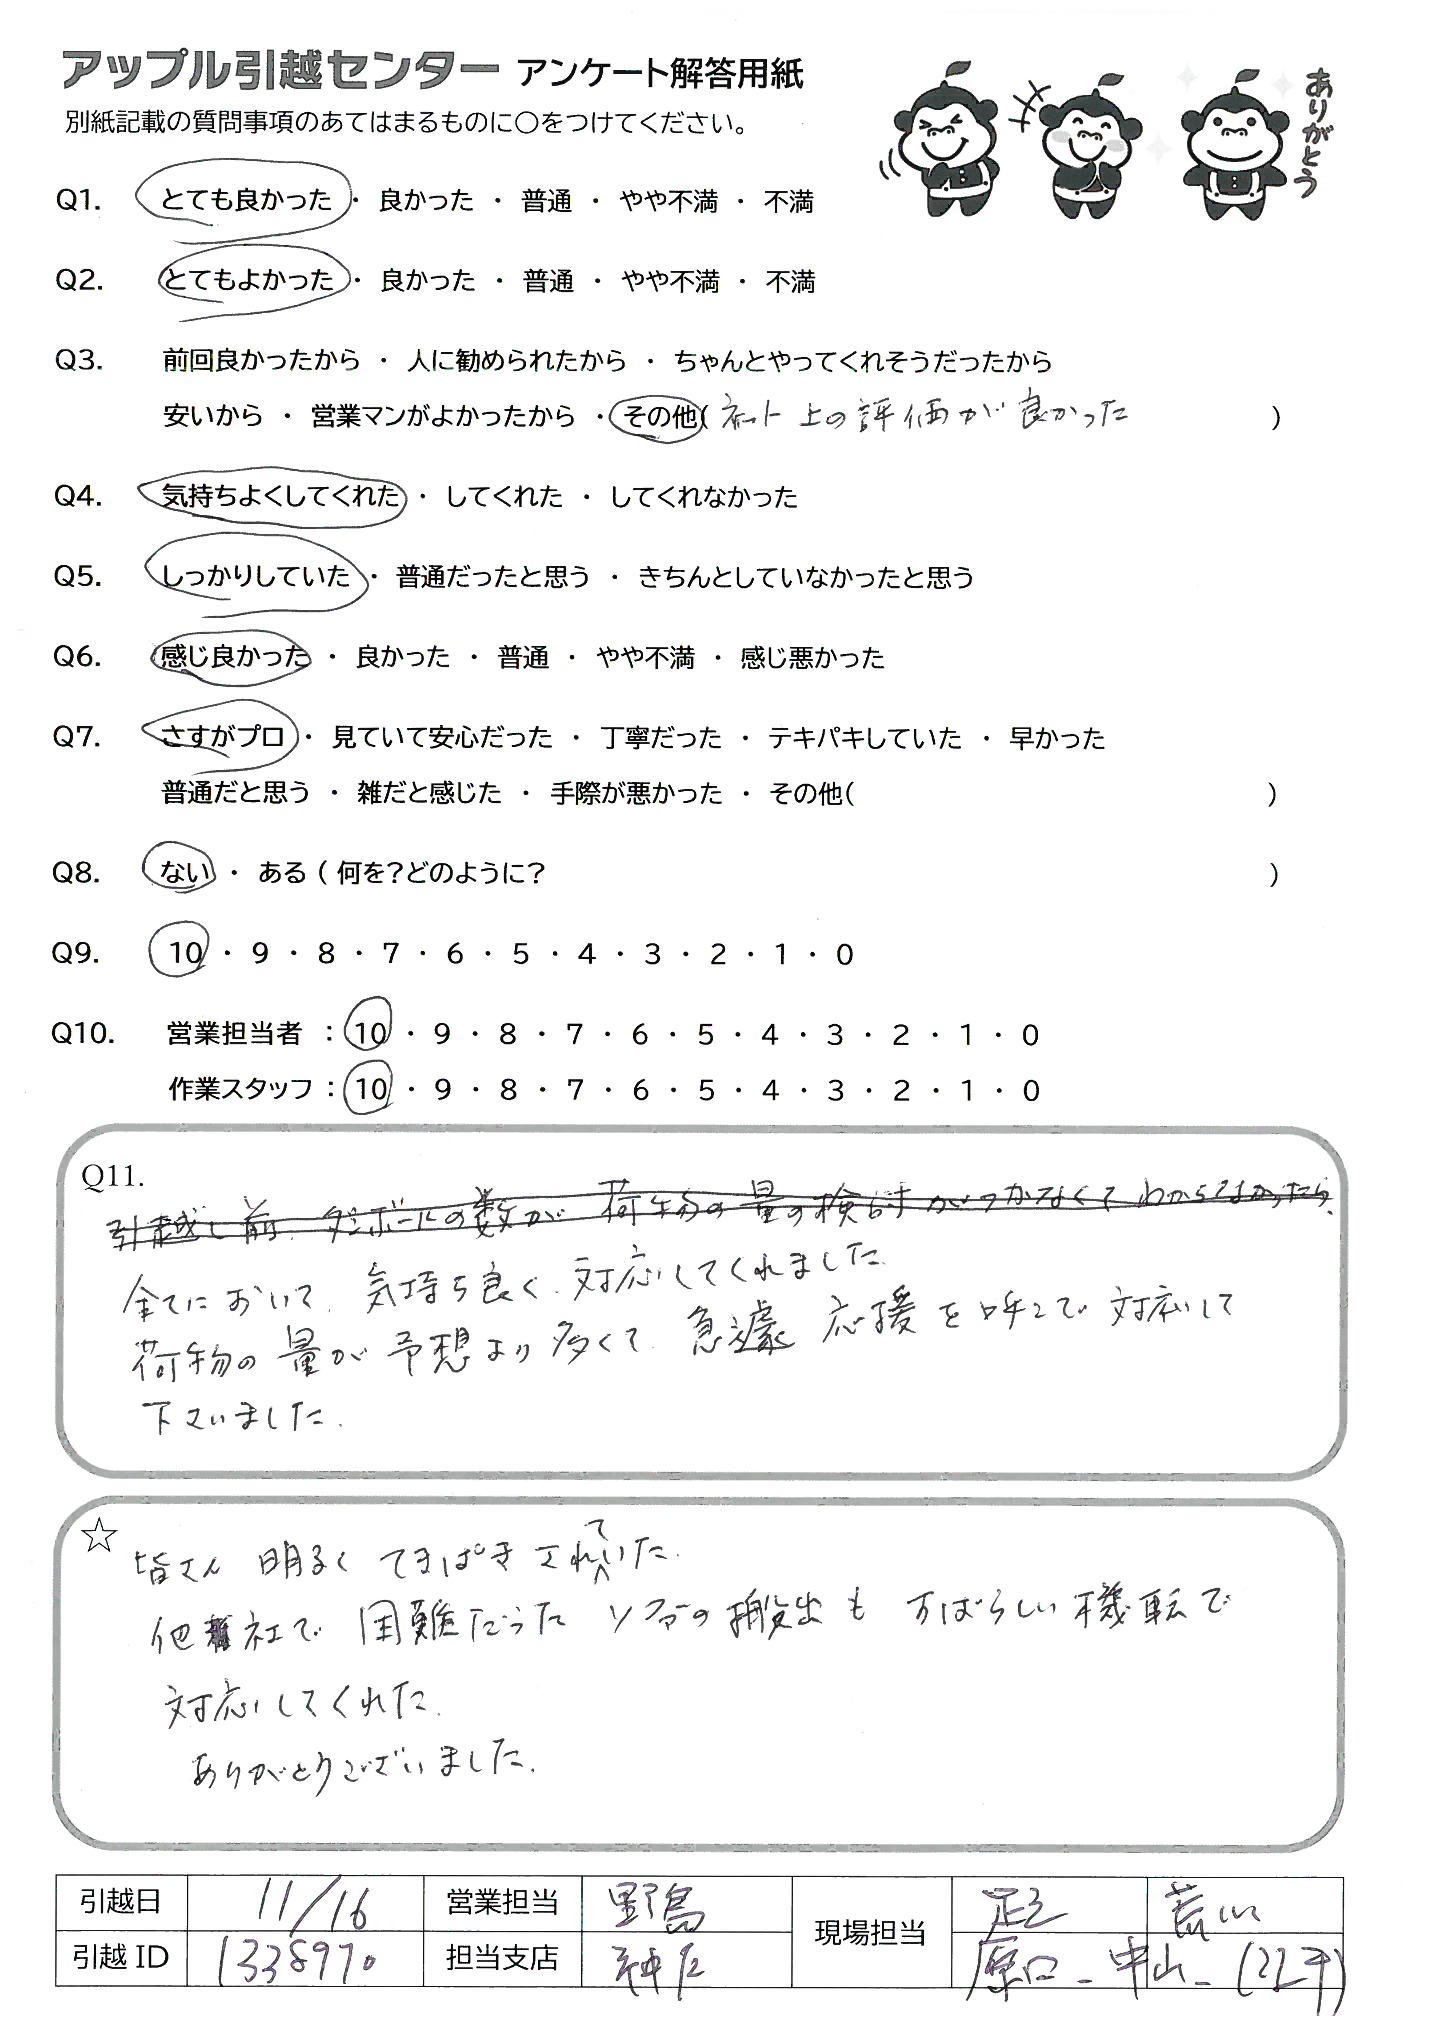 アップル引越センター アンケート解答用紙
別紙記載の質問事項のあてはまるものに〇をつけてください。
ありがとう
Q1. とても良かった ・ 良かった ・ 普通 ・ やや不満 ・ 不満
Q2. とてもよかった ・ 良かった ・ 普通 ・ やや不満 ・ 不満
Q3. 前回良かったから ・ 人に勧められたから ・ ちゃんとやってくれそうだったから
安いから ・ 営業マンがよかったから ・ その他( ネット上の評価が良かった )
Q4. 気持ちよくしてくれた ・ してくれた ・ してくれなかった
Q5. しっかりしていた ・ 普通だったと思う ・ きちんとしていなかったと思う
Q6. 感じ良かった ・ 良かった ・ 普通 ・ やや不満 ・ 感じ悪かった
Q7. さすがプロ ・ 見ていて安心だった ・ 丁寧だった ・ テキパキしていた ・ 早かった
普通だと思う ・ 雑だと感じた ・ 手際が悪かった ・ その他( )
Q8. ない ・ ある ( 何を?どのように? )
Q9. 10 ・ 9 ・ 8 ・ 7 ・ 6 ・ 5 ・ 4 ・ 3 ・ 2 ・ 1 ・ 0
Q10. 営業担当者 : 10 ・ 9 ・ 8 ・ 7 ・ 6 ・ 5 ・ 4 ・ 3 ・ 2 ・ 1 ・ 0
作業スタッフ : 10 ・ 9 ・ 8 ・ 7 ・ 6 ・ 5 ・ 4 ・ 3 ・ 2 ・ 1 ・ 0
Q11.
引越し前、ダンボールの数が 荷物の量の検討がつかなくてわからなかったら、
全てにおいて、気持ち良く、対応してくれました。
荷物の量が予想より多くて、急遽 応援を呼んで対応して
下さいました。
☆ 皆さん 明るく てきぱきされていた。
他社で 困難だった ソファの搬出も すばらしい機転で
対応してくれた。
ありがとうございました。
引越日 11/16 営業担当 野島 現場担当 足立 荒川
引越 ID 1338970 担当支店 神奈 原口 - 中山 -